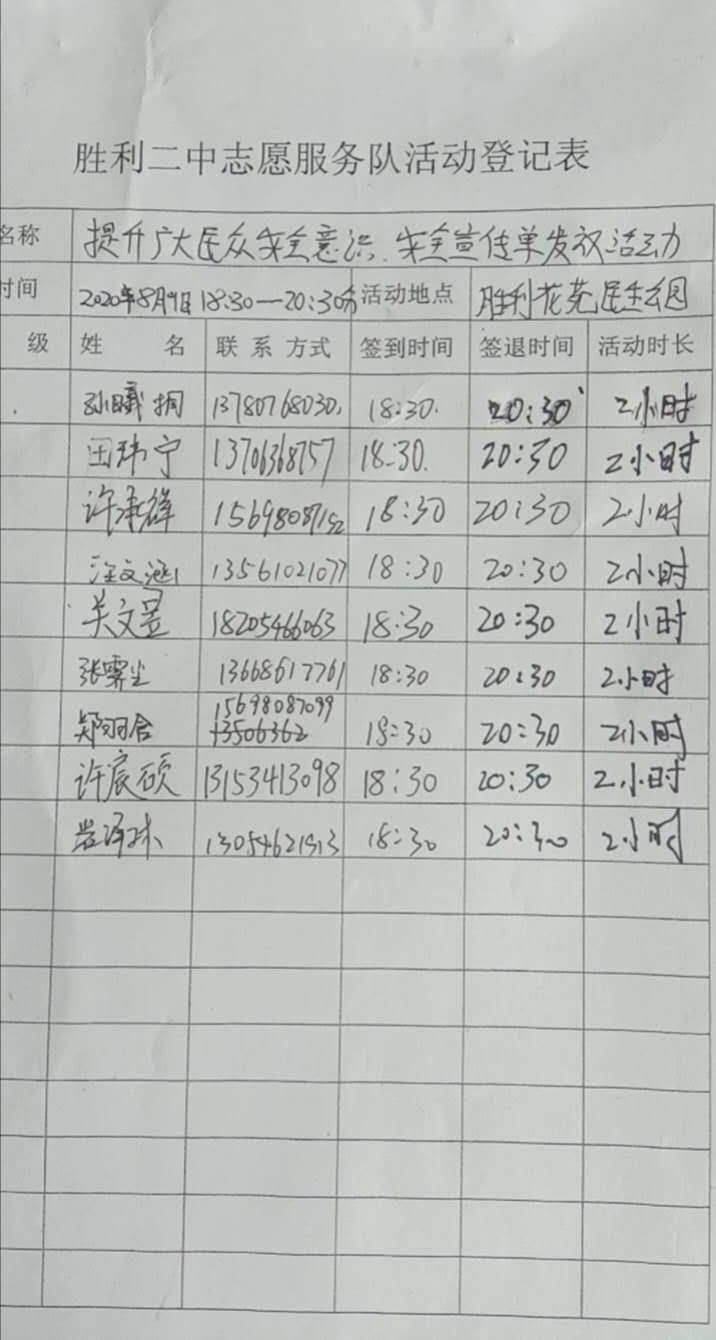 胜利二中志愿服务队活动登记表
名称 提升广大民众安全意识、安全宣传单发放活动
时间 2020年8月9日 18:30—20:30分 活动地点 胜利花苑民生公园
级 姓 名 联系方式 签到时间 签退时间 活动时长
孙曦桐 13780768030 18:30. 20:30 2小时
田玮宁 13706368757 18:30. 20:30 2小时
许承绎 15698087152 18:30 20:30 2小时
汪文涵 13561021077 18:30 20:30 2小时
关文昱 18205466063 18:30 20:30 2小时
张霁尘 13668617761 18:30 20:30 2小时
15698087099
郑羽含 13506362 18:30 20:30 2小时
许宸硕 13153413098 18:30 20:30 2小时
泽林 13054621513 18:30 20:30 2小时